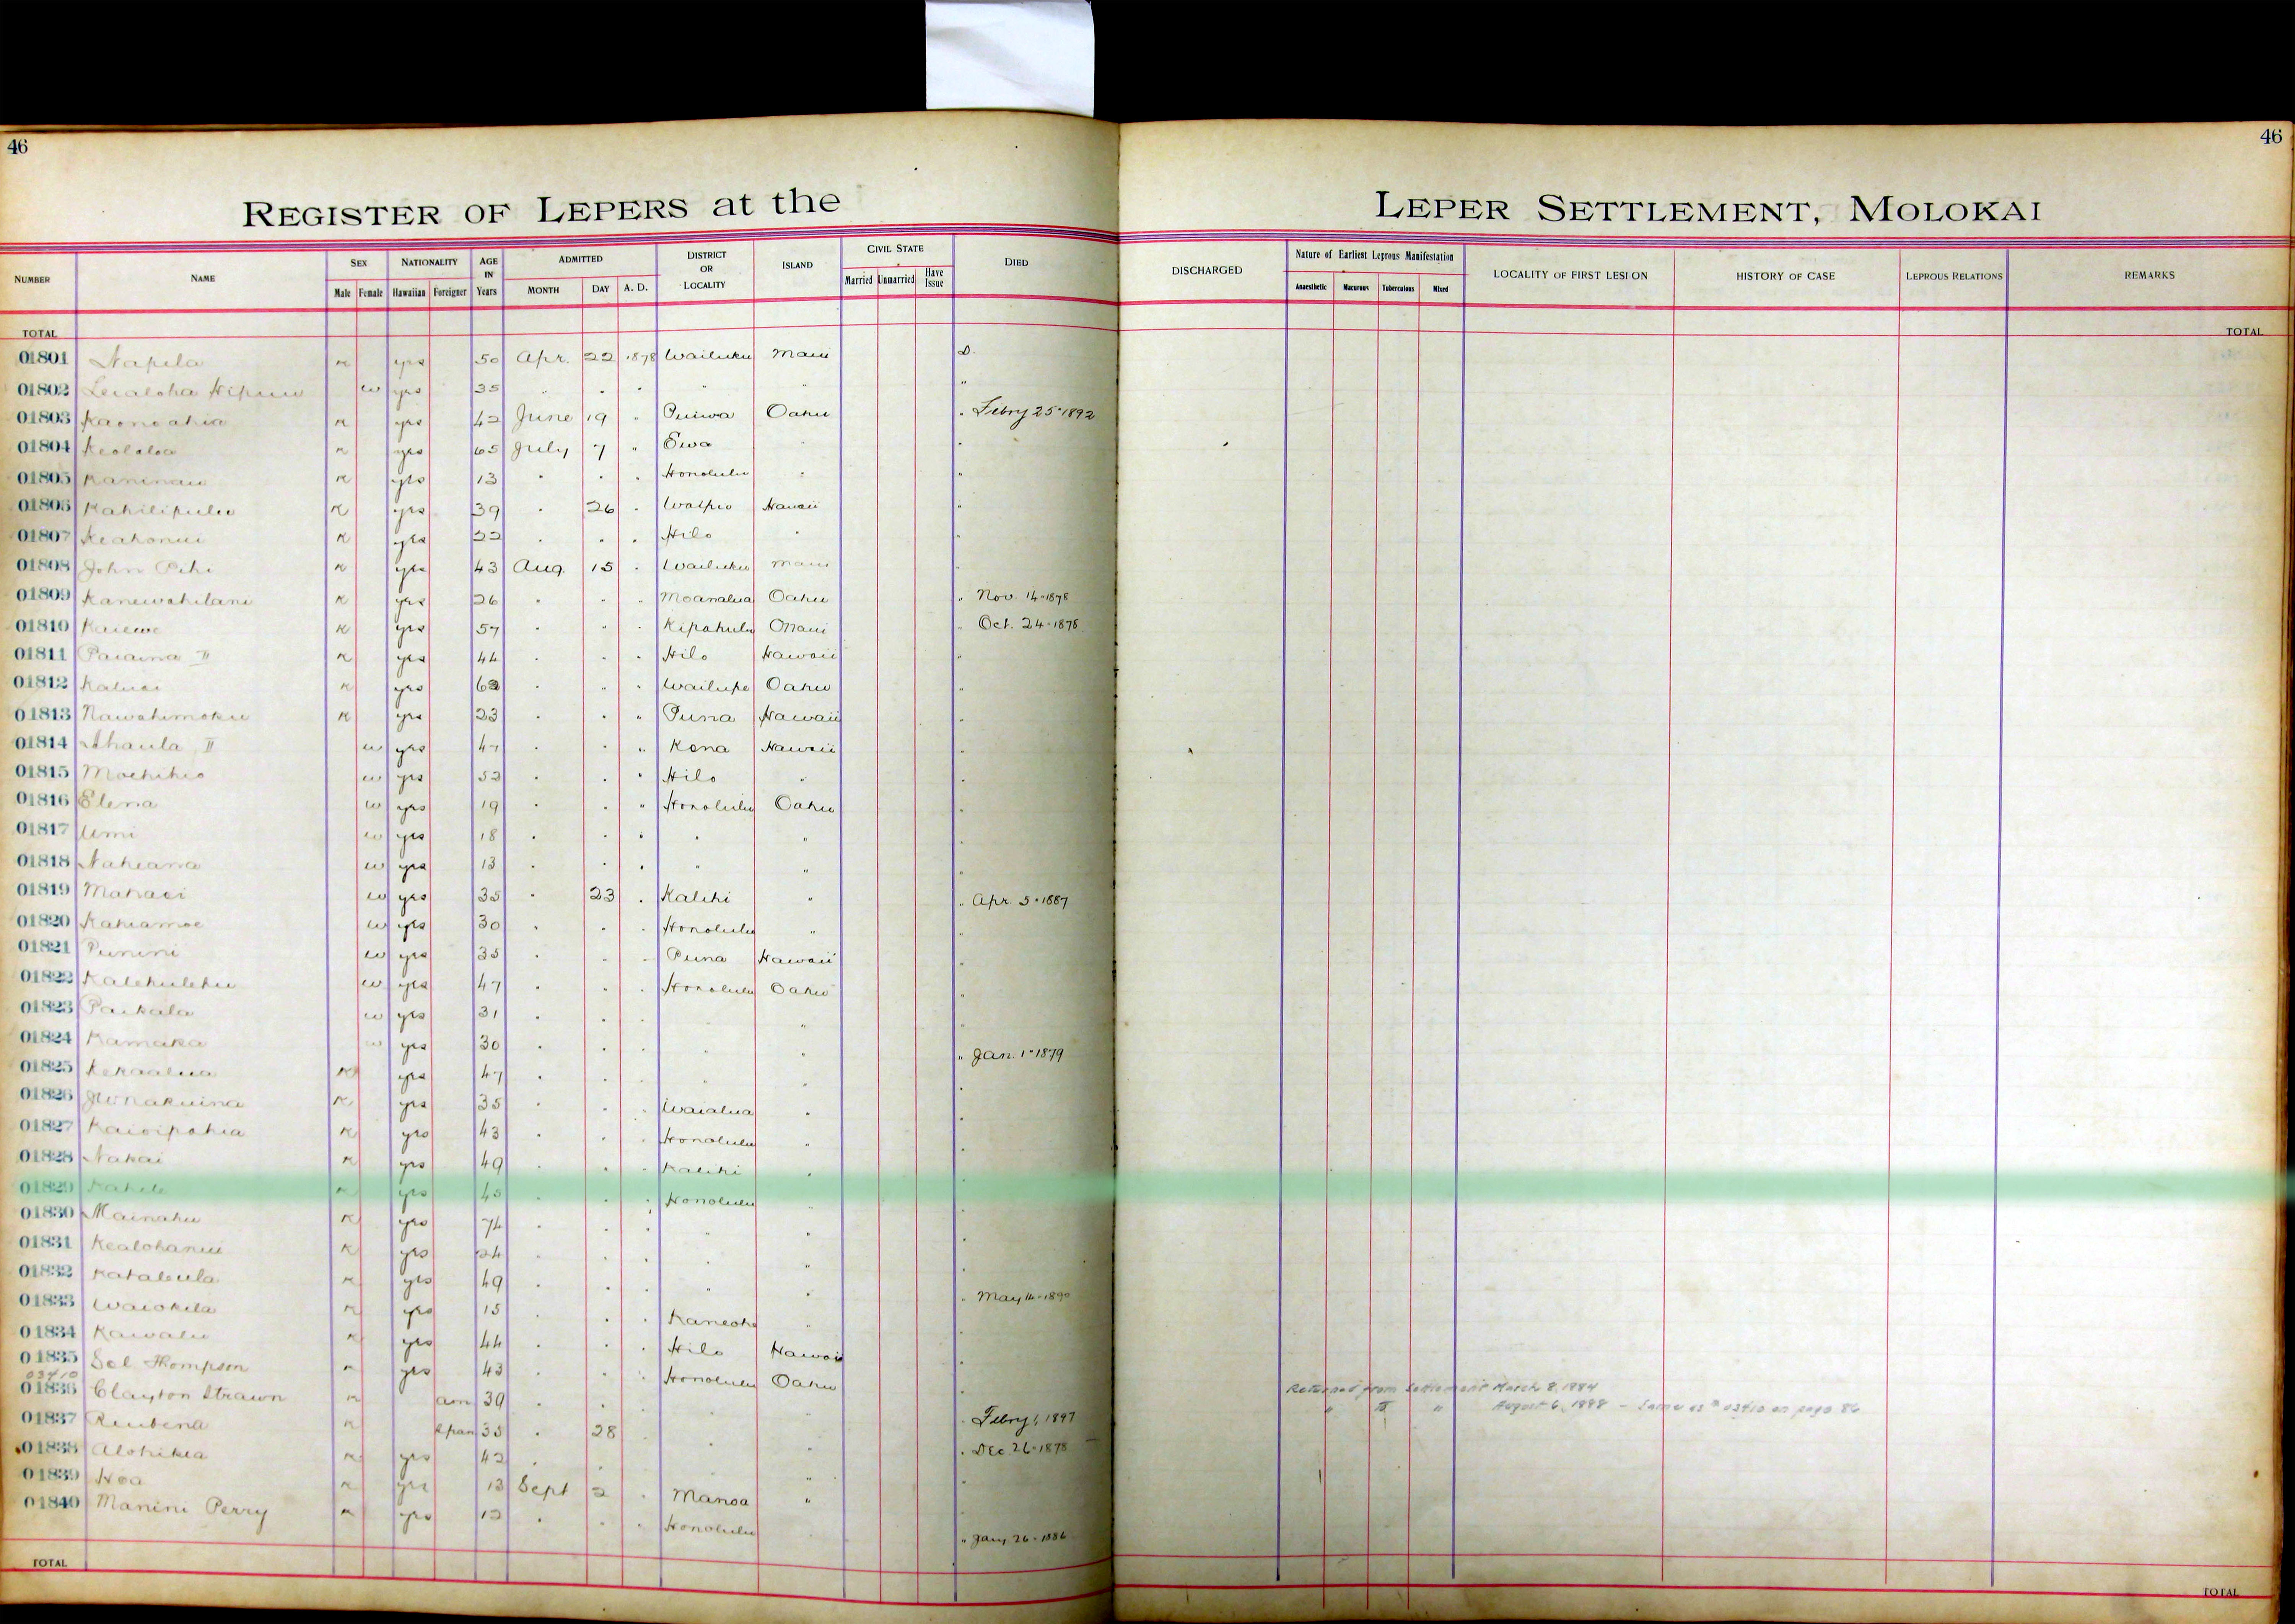 46
46
REGISTER OF LEPERS at the LEPER SETTLEMENT, MOLOKAI
NUMBER NAME SEX NATIONALITY AGE IN Years ADMITTED DISTRICT OR LOCALITY ISLAND CIVIL STATE DIED DISCHARGED Nature of Earliest Leprous Manifestation LOCALITY OF FIRST LESION HISTORY OF CASE LEPROUS RELATIONS REMARKS
Male Female Hawaiian Foreigner MONTH DAY A. D. Married Unmarried Have Issue Anaesthetic Macurous Tuberculous Mixed
TOTAL TOTAL
01801 Napela m yes 50 Apr. 22 1878 Wailuku Maui D.
01802 Leialoha w yes 35 " " " " " "
01803 Kaonoahia m yes 42 June 19 " Puiwa Oahu " Febry 25 - 1892
01804 Keololoa m yes 65 July 7 " Ewa " "
01805 Kaninau m yes 13 " " " Honolulu " "
01806 Kahilipulu m yes 39 " 26 " Waipio Hawaii "
01807 Keahonui m yes 22 " " " Hilo " "
01808 John m yes 43 Aug. 15 " Wailuku Maui "
01809 Kanewahilani m yes 26 " " " Moanalua Oahu " Nov. 14 - 1878
01810 m yes 57 " " " Kipahulu Maui " Oct. 24 - 1878
01811 Paiaina II m yes 44 " " " Hilo Hawaii "
01812 Kaluai m yes " " " Wailupe Oahu "
01813 Nawahimoku m yes 23 " " " Puna Hawaii "
01814 Ahaula II w yes 47 " " " Kona Hawaii "
01815 w yes 52 " " " Hilo " "
01816 Elena w yes 19 " " " Honolulu Oahu "
01817 Umi w yes 18 " " " " " "
01818 Nakeana w yes 13 " " " " " "
01819 Mahaei w yes 35 " 23 " Kalihi " " Apr. 5 - 1887
01820 Kahiamoe w yes 30 " " " Honolulu " "
01821 Punini w yes 35 " " " Puna Hawaii "
01822 Kalehulehu w yes 47 " " " Honolulu Oahu "
01823 Paikala w yes 31 " " " " " "
01824 Kamaka w yes 30 " " " " " " Jan. 1 - 1879
01825 Kekaalua m yes 47 " " " " " "
01826 m yes 35 " " " Waialua " "
01827 Kaioipahia m yes 43 " " " Honolulu " "
01828 Nakai m yes 49 " " " Kalihi " "
01829 m yes 45 " " " Honolulu " "
01830 Mainahu m yes 74 " " " " " "
01831 Kealohanui m yes 24 " " " " " "
01832 m yes 49 " " " " " " May 14 - 1890
01833 Waiokila m yes 15 " " " Kaneohe " "
01834 Kawalu m yes 44 " " " Hilo Hawaii "
01835 Sol Thompson m yes 43 " " " Honolulu Oahu " Returned from Settlement March 8, 1884
03410
01836 Clayton Strawn m am 39 " " " " " " Febry 1, 1897 " " " August 6, 1888 - Same as # 03410 on page 86
01837 Reubena m Span 35 " 28 " " " " Dec 26 - 1878
01838 Alohikea m yes 42 " " " " " "
01839 Hoa m yes 13 Sept 2 " Manoa " "
01840 Manini Perry m yes 12 " " " Honolulu " Jany 26 - 1886
TOTAL TOTAL